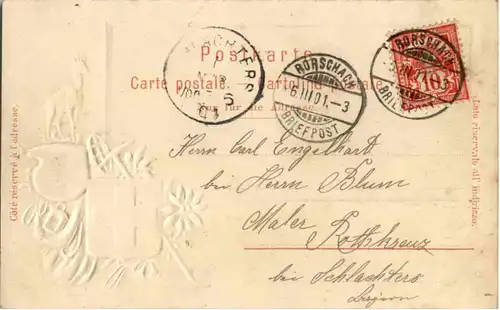 Postkarte.
Carte postale. Cartolina postale.
Nur für die Adresse.
Côté réservé à l'adresse.
Lato riservato all' indirizzo.
RORSCHACH
6.III.01.-3
BRIEFPOST
RORSCHACH
BRIEFPOST
10
Herrn Carl Engelhart
bei Herrn Blum
Maler Rothkreuz
bei Schlachters
Bayern